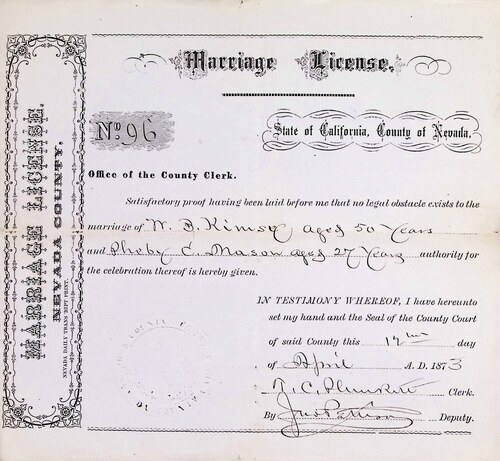 Marriage License.
No. 96
State of California, County of Nevada.
Office of the County Clerk.
Satisfactory proof having been laid before me that no legal obstacle exists to the
marriage of W. B. Kimsey aged 50 Years
and Pheby C. Mason aged 27 Years authority for
the celebration thereof is hereby given.
IN TESTIMONY WHEREOF, I have hereunto
set my hand and the Seal of the County Court
of said County this day
of April A. D. 1873
T. C. Plunkett Clerk.
By Jno Pattison Deputy.
MARRIAGE LICENSE.
NEVADA COUNTY.
NEVADA DAILY TRANSCRIPT PRINT.